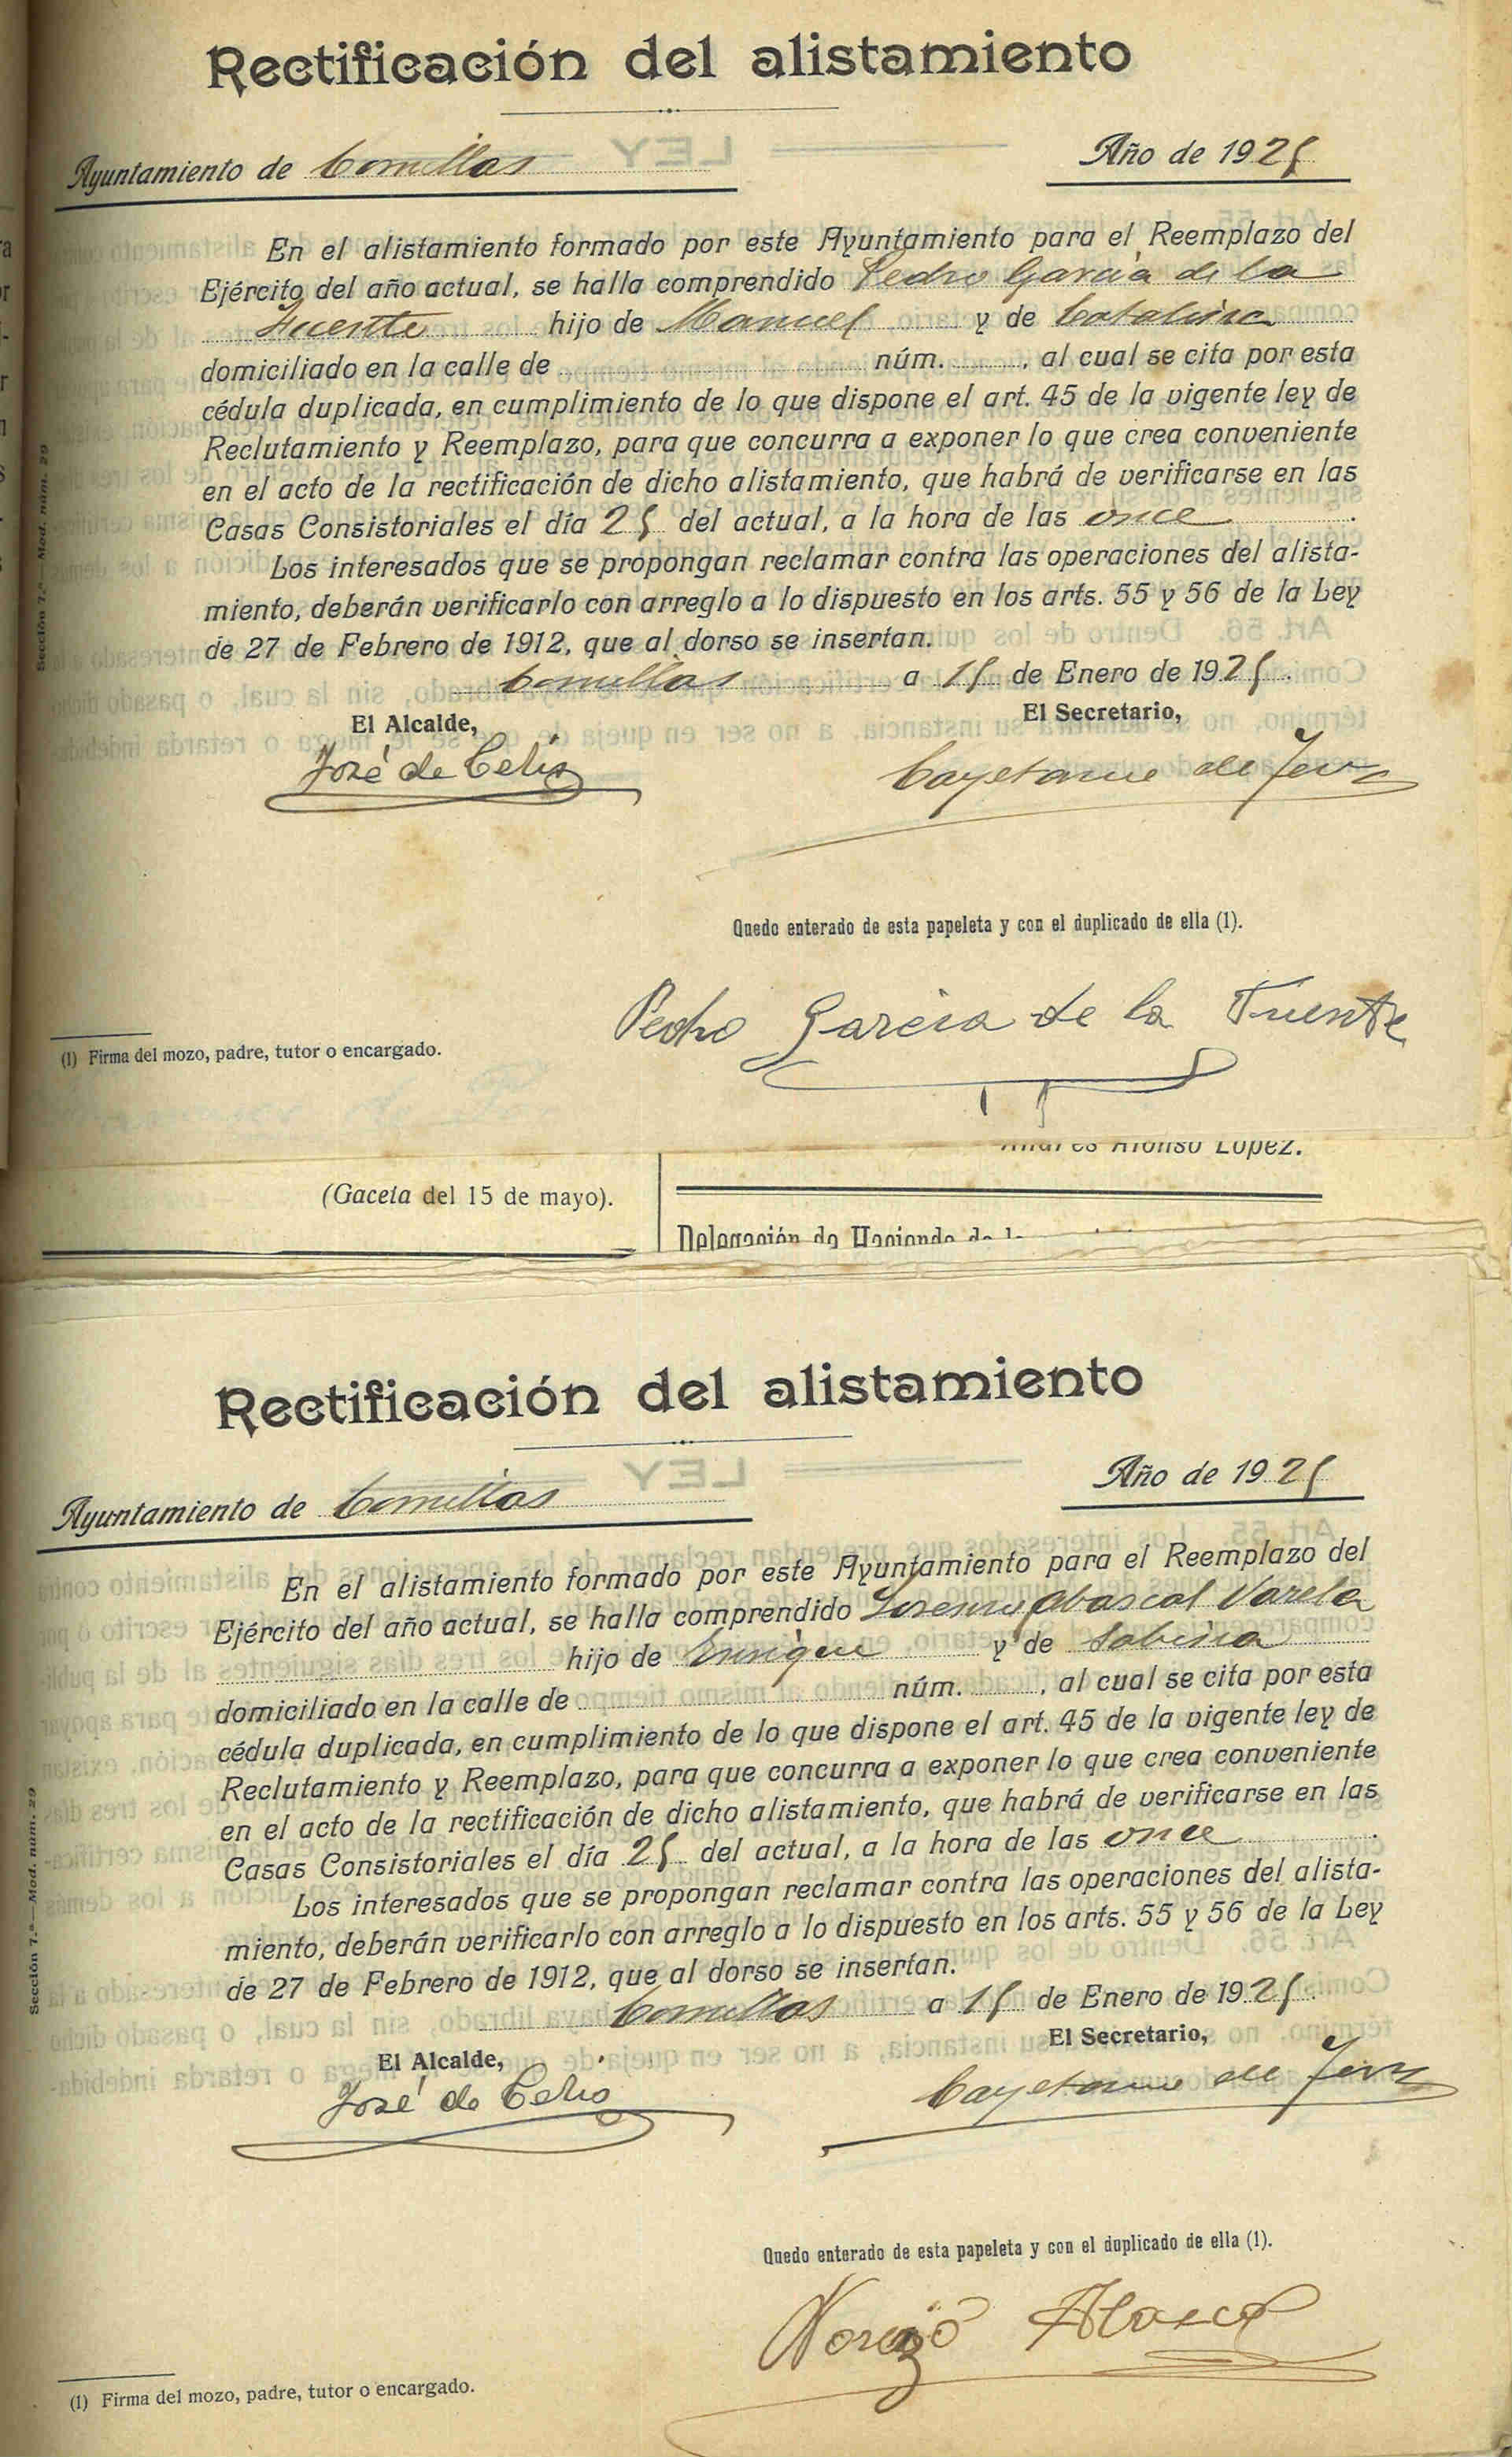 Rectificación del alistamiento
Ayuntamiento de Comillas
Año de 1925
En el alistamiento formado por este Ayuntamiento para el Reemplazo del
Ejército del año actual, se halla comprendido Pedro Garcia de la
Fuente hijo de Manuel y de Catalina
domiciliado en la calle de núm. , al cual se cita por esta
cédula duplicada, en cumplimiento de lo que dispone el art. 45 de la vigente ley de
Reclutamiento y Reemplazo, para que concurra a exponer lo que crea conveniente
en el acto de la rectificación de dicho alistamiento, que habrá de verificarse en las
Casas Consistoriales el día 25 del actual, a la hora de las once.
Los interesados que se propongan reclamar contra las operaciones del alista-
miento, deberán verificarlo con arreglo a lo dispuesto en los arts. 55 y 56 de la Ley
de 27 de Febrero de 1912, que al dorso se insertan.
Comillas a 15 de Enero de 1925.
El Alcalde,
El Secretario,
José de Celis
Cayetano de
Quedo enterado de esta papeleta y con el duplicado de ella (1).
Pedro Garcia de la Fuente
(1) Firma del mozo, padre, tutor o encargado.
Sección 7.ª—Mod. núm. 29
Andrés Alonso López.
(Gaceta del 15 de mayo).
Delegación de Hacienda de
Rectificación del alistamiento
Ayuntamiento de Comillas
Año de 1925
En el alistamiento formado por este Ayuntamiento para el Reemplazo del
Ejército del año actual, se halla comprendido Lorenzo Abascal Varela
hijo de Enrique y de Sabina
domiciliado en la calle de núm. , al cual se cita por esta
cédula duplicada, en cumplimiento de lo que dispone el art. 45 de la vigente ley de
Reclutamiento y Reemplazo, para que concurra a exponer lo que crea conveniente
en el acto de la rectificación de dicho alistamiento, que habrá de verificarse en las
Casas Consistoriales el día 25 del actual, a la hora de las once.
Los interesados que se propongan reclamar contra las operaciones del alista-
miento, deberán verificarlo con arreglo a lo dispuesto en los arts. 55 y 56 de la Ley
de 27 de Febrero de 1912, que al dorso se insertan.
Comillas a 15 de Enero de 1925.
El Alcalde,
El Secretario,
José de Celis
Cayetano de
Quedo enterado de esta papeleta y con el duplicado de ella (1).
Abascal
(1) Firma del mozo, padre, tutor o encargado.
Sección 7.ª—Mod. núm. 29